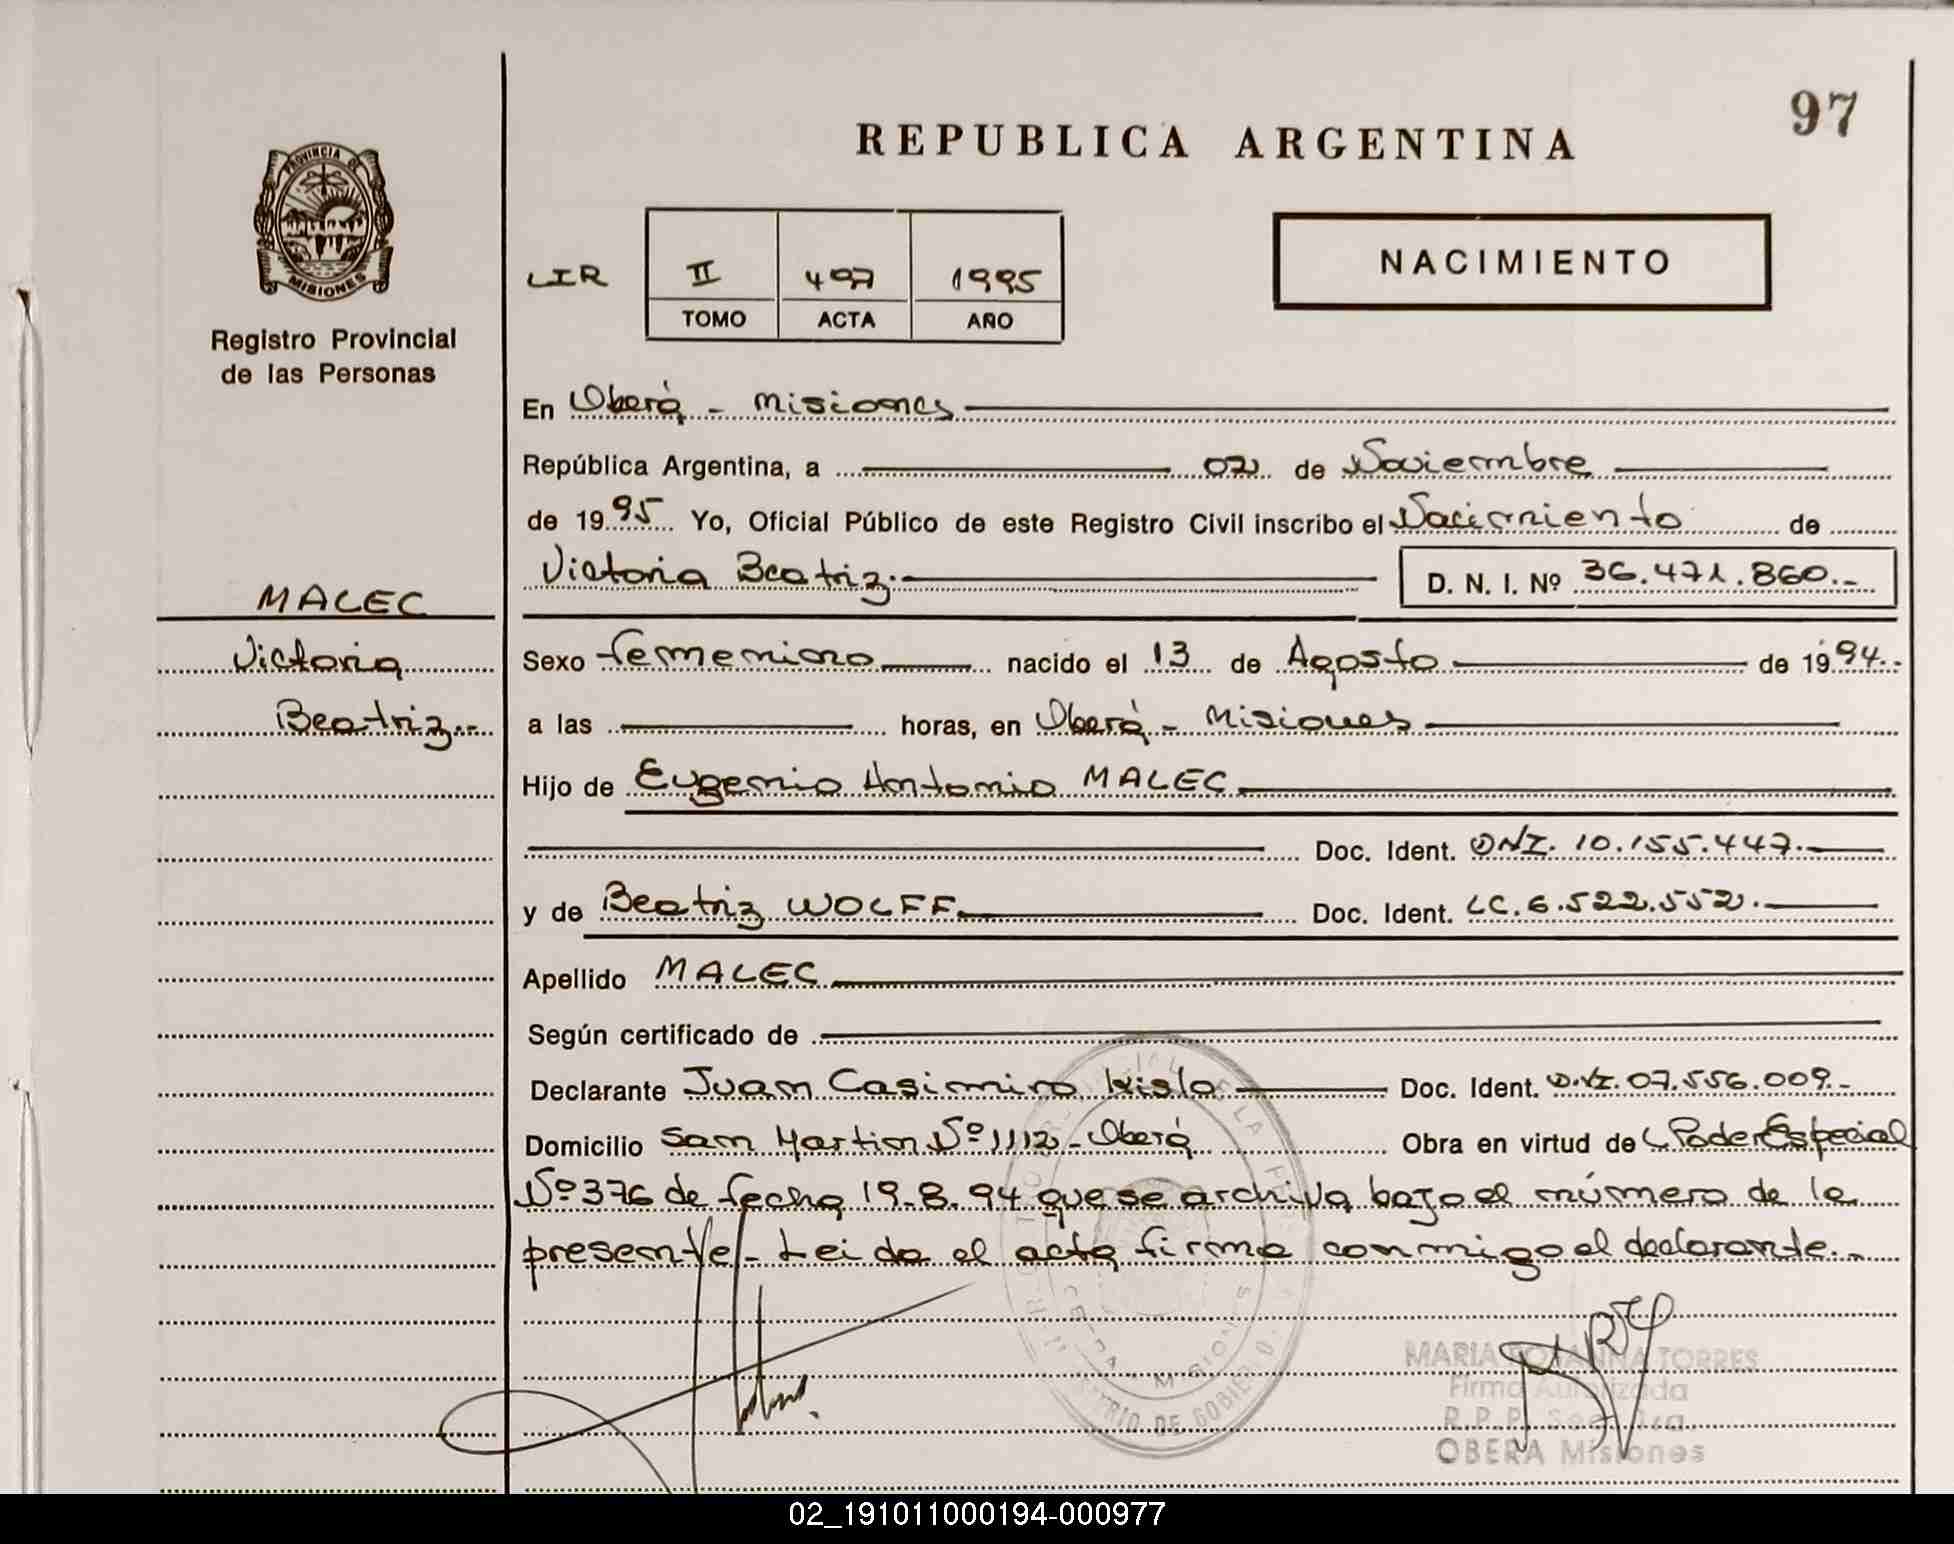 97
REPUBLICA ARGENTINA
PROVINCIA DE
MISIONES
Registro Provincial
de las Personas
LIR II 497 1995
TOMO ACTA AÑO
NACIMIENTO
En Oberá - Misiones
República Argentina, a 02 de Noviembre
de 1995 Yo, Oficial Público de este Registro Civil inscribo el Nacimiento de
Victoria Beatriz.- D. N. I. Nº 36.471.860.-
MALEC
Victoria
Beatriz.-
Sexo femenino nacido el 13 de Agosto de 1994.-
a las horas, en Oberá - Misiones
Hijo de Eugenio Antonio MALEC
Doc. Ident. DNI. 10.155.447.
y de Beatriz WOLFF Doc. Ident. LC. 6.522.552.
Apellido MALEC
Según certificado de
Declarante Juan Casimiro Kislo Doc. Ident. D.N.I. 07.556.009.-
Domicilio San Martin Nº 1112 - Oberá Obra en virtud de Poder Especial
Nº 376 de fecha 19-8-94 que se archiva bajo el número de la
presente.- Leida el acta firma conmigo el declarante.-
MARIA ROSANNA TORRES
Firma Autorizada
R.P.P.
OBERA Misiones
MISIONES
MINISTERIO DE GOBIERNO
02_191011000194-000977